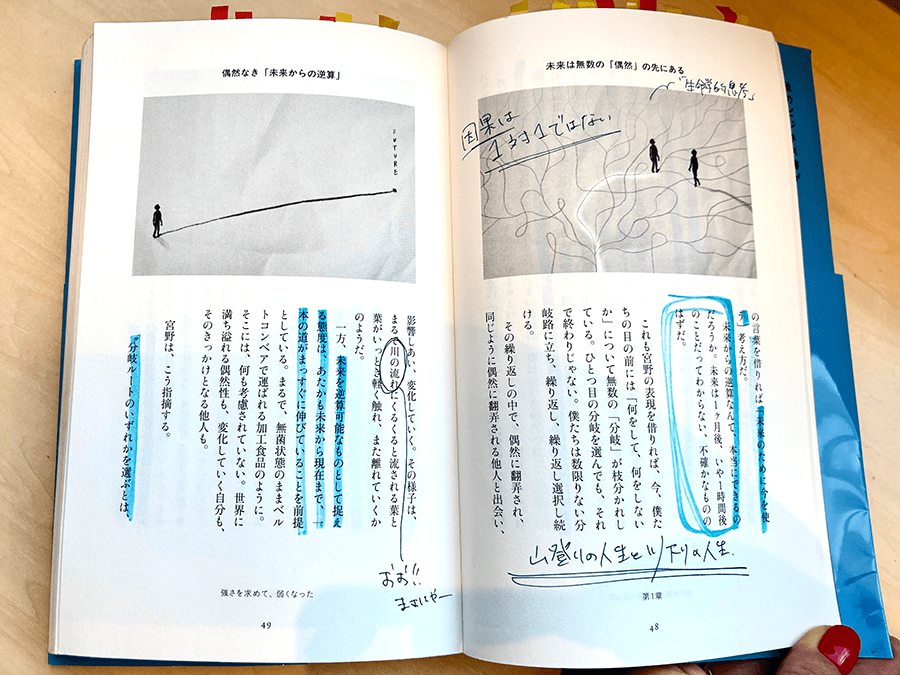 未来は無数の「偶然」の先にある
「生命学的思考」
因果は
1対1ではない
の言葉を借りれば「未来のために今を使
う」考え方だ。
未来からの逆算なんて、本当にできるの
だろうか。未来は1ヶ月後、いや1時間後
のことだってわからない、不確かなものの
はずだ。
これも宮野の表現を借りれば、今、僕た
ちの目の前には「何をして、何をしない
か」について無数の「分岐」が枝分かれし
ている。ひとつ目の分岐を選んでも、それ
で終わりじゃない。僕たちは数限りない分
岐路に立ち、繰り返し、繰り返し選択し続
ける。
その繰り返しの中で、偶然に翻弄され、
同じように偶然に翻弄される他人と出会い、
山登りの人生と川下りの人生.
第1章
48
偶然なき「未来からの逆算」
FUTURE
影響しあい、変化していく。その様子は、
まるで川の流れにくるくると流される葉と
葉がいっとき軽く触れ、また離れていくか
のようだ。
一方、未来を逆算可能なものとして捉え
る態度は、あたかも未来から現在まで、一
本の道がまっすぐに伸びていることを前提
としている。まるで、無菌状態のままベル
トコンベアで運ばれる加工食品のように。
そこには、何も考慮されていない。世界に
満ち溢れる偶然性も、変化していく自分も、
そのきっかけとなる他人も。
宮野は、こう指摘する。
「分岐ルートのいずれかを選ぶとは、
おお!!
まさにやー
強さを求めて、弱くなった
49